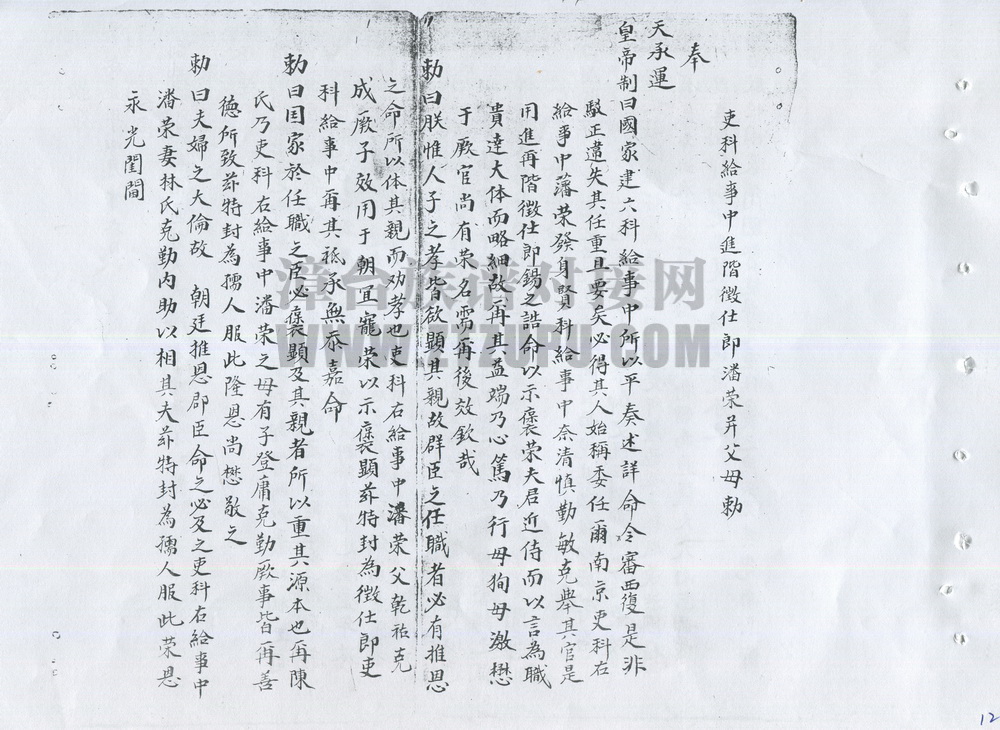 吏科給事中進階徵仕郎潘荣并父母勅
奉
天承運
皇帝制曰國家建六科給事中所以平奏述詳命令審西復是非
駁正違失其任重且要矣必得其人始稱委任爾南京吏科右
給事中藩荣發身賢科給事中奈清慎勤敏克舉其官是
用進再階徵仕郎錫之誥命以示褒荣夫居近侍而以言為職
貴達大体而略細故再其益端乃心篤乃行毋狥毋激懋
于厥官尚有荣名需再後效欽哉
勅曰朕惟人子之孝皆欲顯其親故群臣之任職者必有推恩
之命所以体其親而劝孝也吏科右給事中潘荣父乾祐克
成厥子效用于朝宜寵荣以示褒顯茲特封為徵仕郎吏
科給事中再其祗承無忝嘉命
勅曰国家於任職之臣必褒顯及其親者所以重其源本也再陳
氏乃吏科右給事中潘荣之母有子登庸克勤厥事皆再善
德所致茲特封為孺人服此隆恩尚懋敬之
勅曰夫婦之大倫故 朝廷推恩郡臣命之必及之吏科右給事中
潘荣妻林氏克勤内助以相其夫茲特封為孺人服此荣恩
永光閨閫
漳台族谱对接网
WWW.ZTZUPU.COM
12